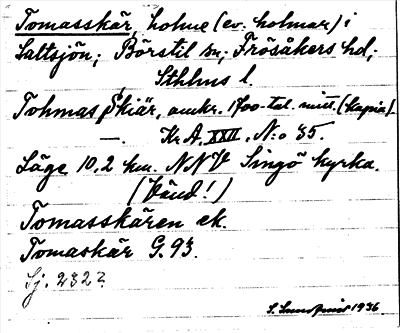 Tomasskär, holme (ev. holmar) i
Saltsjön; Börstil sn; Frösåkers hd;
Sthlms l.
Tohmas Skiär, omkr. 1700-tal. mitt. (kopia).
—. Kr. A. XXII, N:o 35.
Läge 10,2 km. NNV Singö kyrka.
(Vänd!)
Tomasskären ek.
Tomaskär G. 93.
Sj. 232?
S. Sundqvist 1936